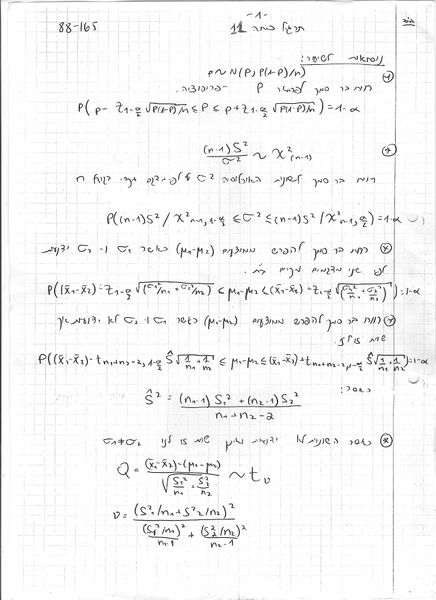 -1-
88-165 תרגיל כיתה 11
בס"ד
נוסחאות לשיעור:
p̂~N(P, P(1-P)/n)
רווח בר סמך לפרמטר P - פרופורציה.
P(p-Z_{1-α/2}√(P(1-P)/n) ≤ P ≤ p+Z_{1-α/2}√(P(1-P)/n)) = 1-α
(n-1)S²/σ² ~ χ²_{(n-1)}
רווח בר סמך לשונות האוכלוסיה σ² על פי מדגם מקרי בגודל n
P((n-1)S²/χ²_{n-1,1-α/2} ≤ σ² ≤ (n-1)S²/χ²_{n-1,α/2}) = 1-α
רווח בר סמך להפרש ממוצעים (μ₁-μ₂) כאשר σ₁ ו- σ₂ ידועות
לפי שני מדגמים מקריים ב"ת.
P((x̄₁-x̄₂)-Z_{1-α/2}√(σ₁²/n₁+σ₂²/n₂) ≤ μ₁-μ₂ ≤ (x̄₁-x̄₂)+Z_{1-α/2}√(σ₁²/n₁+σ₂²/n₂)) = 1-α
רווח בר סמך להפרש ממוצעים (μ₁-μ₂) כאשר σ₁ ו σ₂ לא ידועות אך
שוות זו לזו.
P((x̄₁-x̄₂)-t_{n₁+n₂-2,1-α/2} Ŝ√(1/n₁+1/n₂) ≤ μ₁-μ₂ ≤ (x̄₁-x̄₂)+t_{n₁+n₂-2,1-α/2} Ŝ√(1/n₁+1/n₂)) = 1-α
כאשר:
Ŝ² = ((n₁-1)S₁²+(n₂-1)S₂²)/(n₁+n₂-2)
כאשר השונויות לא ידועות ואינן שוות זו לזו σ₁≠σ₂
Q = ((x̄₁-x̄₂)-(μ₁-μ₂))/√(S₁²/n₁+S₂²/n₂) ~ t_ν
ν = (S₁²/n₁+S₂²/n₂)²/((S₁²/n₁)²/(n₁-1)+(S₂²/n₂)²/(n₂-1))